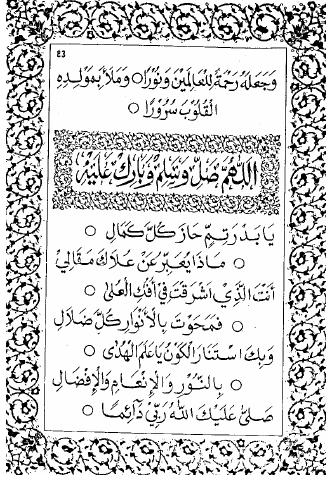 ٤٣
وَجَعَلَهُ رَحْمَةً لِلْعَالَمِيْنَ وَنُوْرًا ○ وَمَلَأَ بِمَوْلِدِهِ
الْقُلُوْبَ سُرُوْرًا ○
اَللّٰهُمَّ صَلِّ وَسَلِّمْ وَبَارِكْ عَلَيْهِ
يَا بَدْرَ تِمٍّ حَازَ كُلَّ كَمَالِ ○
○ مَاذَا يُعَبِّرُ عَنْ عُلَاكَ مَقَالِيْ
اَنْتَ الَّذِيْ اَشْرَقْتَ فِيْ اُفُقِ الْعُلٰى ○
○ فَمَحَوْتَ بِالْاَنْوَارِ كُلَّ ضَلَالِ
وَبِكَ اسْتَنَارَ الْكَوْنُ يَا عَلَمَ الْهُدٰى ○
○ بِالنُّوْرِ وَالْاِنْعَامِ وَالْاِفْضَالِ
صَلّٰى عَلَيْكَ اللّٰهُ رَبِّيْ دَآئِمًا ○